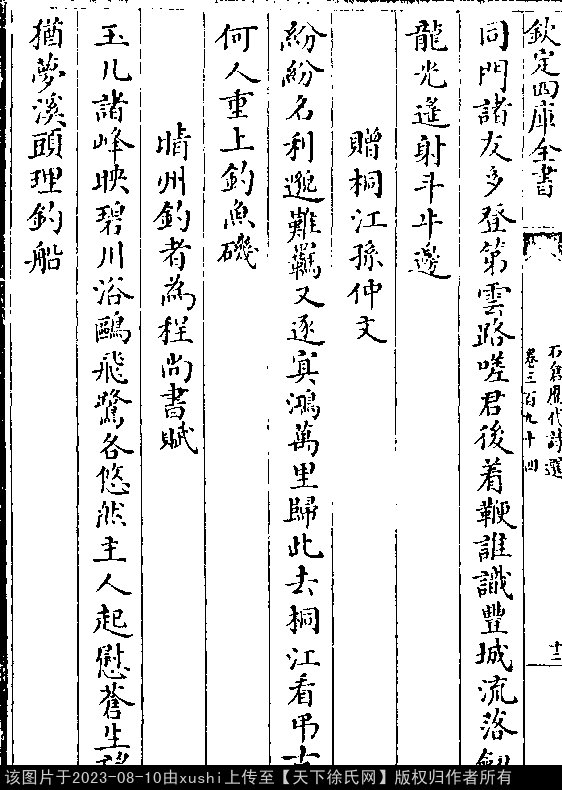 欽定四庫全書
石倉歷代詩選
卷三百九十四
十二
同門諸友多登第雲路嗟君後着鞭誰識豐城流落劍
龍光遙射斗牛邊
贈桐江孫仲文
紛紛名利邈難羈又逐冥鴻萬里歸此去桐江看弔古
何人重上釣魚磯
晴州釣者為程尚書賦
玉几諸峰映碧川浴鷗飛鷺各悠然主人起慰蒼生
猶夢溪頭理釣船
该图片于2023-08-10由xushi上传至【天下徐氏网】版权归作者所有